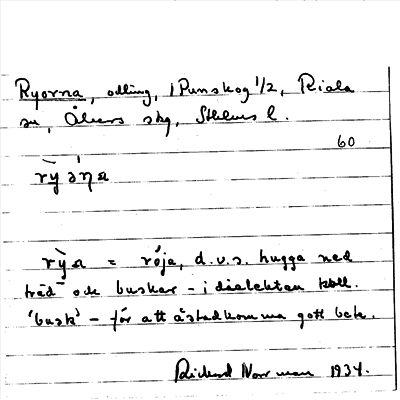 Ryorna, odling, i Punskog 1/2, Riala
sn, Åkers skg, Sthlms l.
60
rỳəṇa
rỳa = röja, d.v.s. hugga ned
träd och buskar – i dialekten koll.
'busk' – för att åstadkomma gott bete.
Richard Norrman 1934.